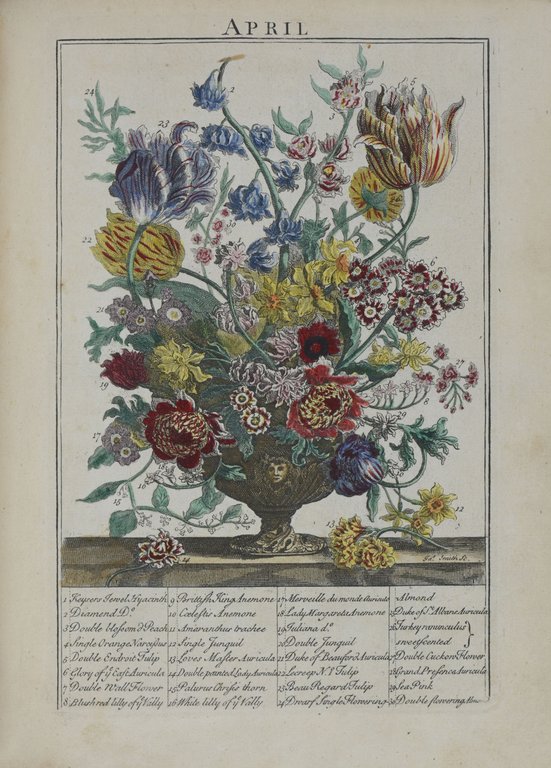 APRIL
1 Keysers Jewel Hyacinth
2 Diamend Do.
3 Double blossom'd Peach
4 Single Orange Narcissus
5 Double Endroit Tulip
6 Glory of ye East Auricula
7 Double Wall Flower
8 Blush red lilly of ye Vally
9 Brittish King Anemone
10 Coelestis Anemone
11 Amaranthus trachee
12 Single Junquil
13 Loves Master Auricula
14 Double painted Lady Auricula
15 Palurus Christ thorn
16 White lilly of ye Vally
17 Merveille du monde Auricula
18 Lady Margareta Anemone
19 Juliana do.
20 Double Junquil
21 Duke of Beauford Auricula
22 N.Y Tulip
23 Beau Regard Tulip
24 Dwarf Single Flowering
Almond
Duke of St. Albans Auricula
26 Turkey ranunculus
sweet scented
27 Double Cuckow Flower
28 Grand Presence Auricula
29 Sea Pink
30 Double flowering Almo